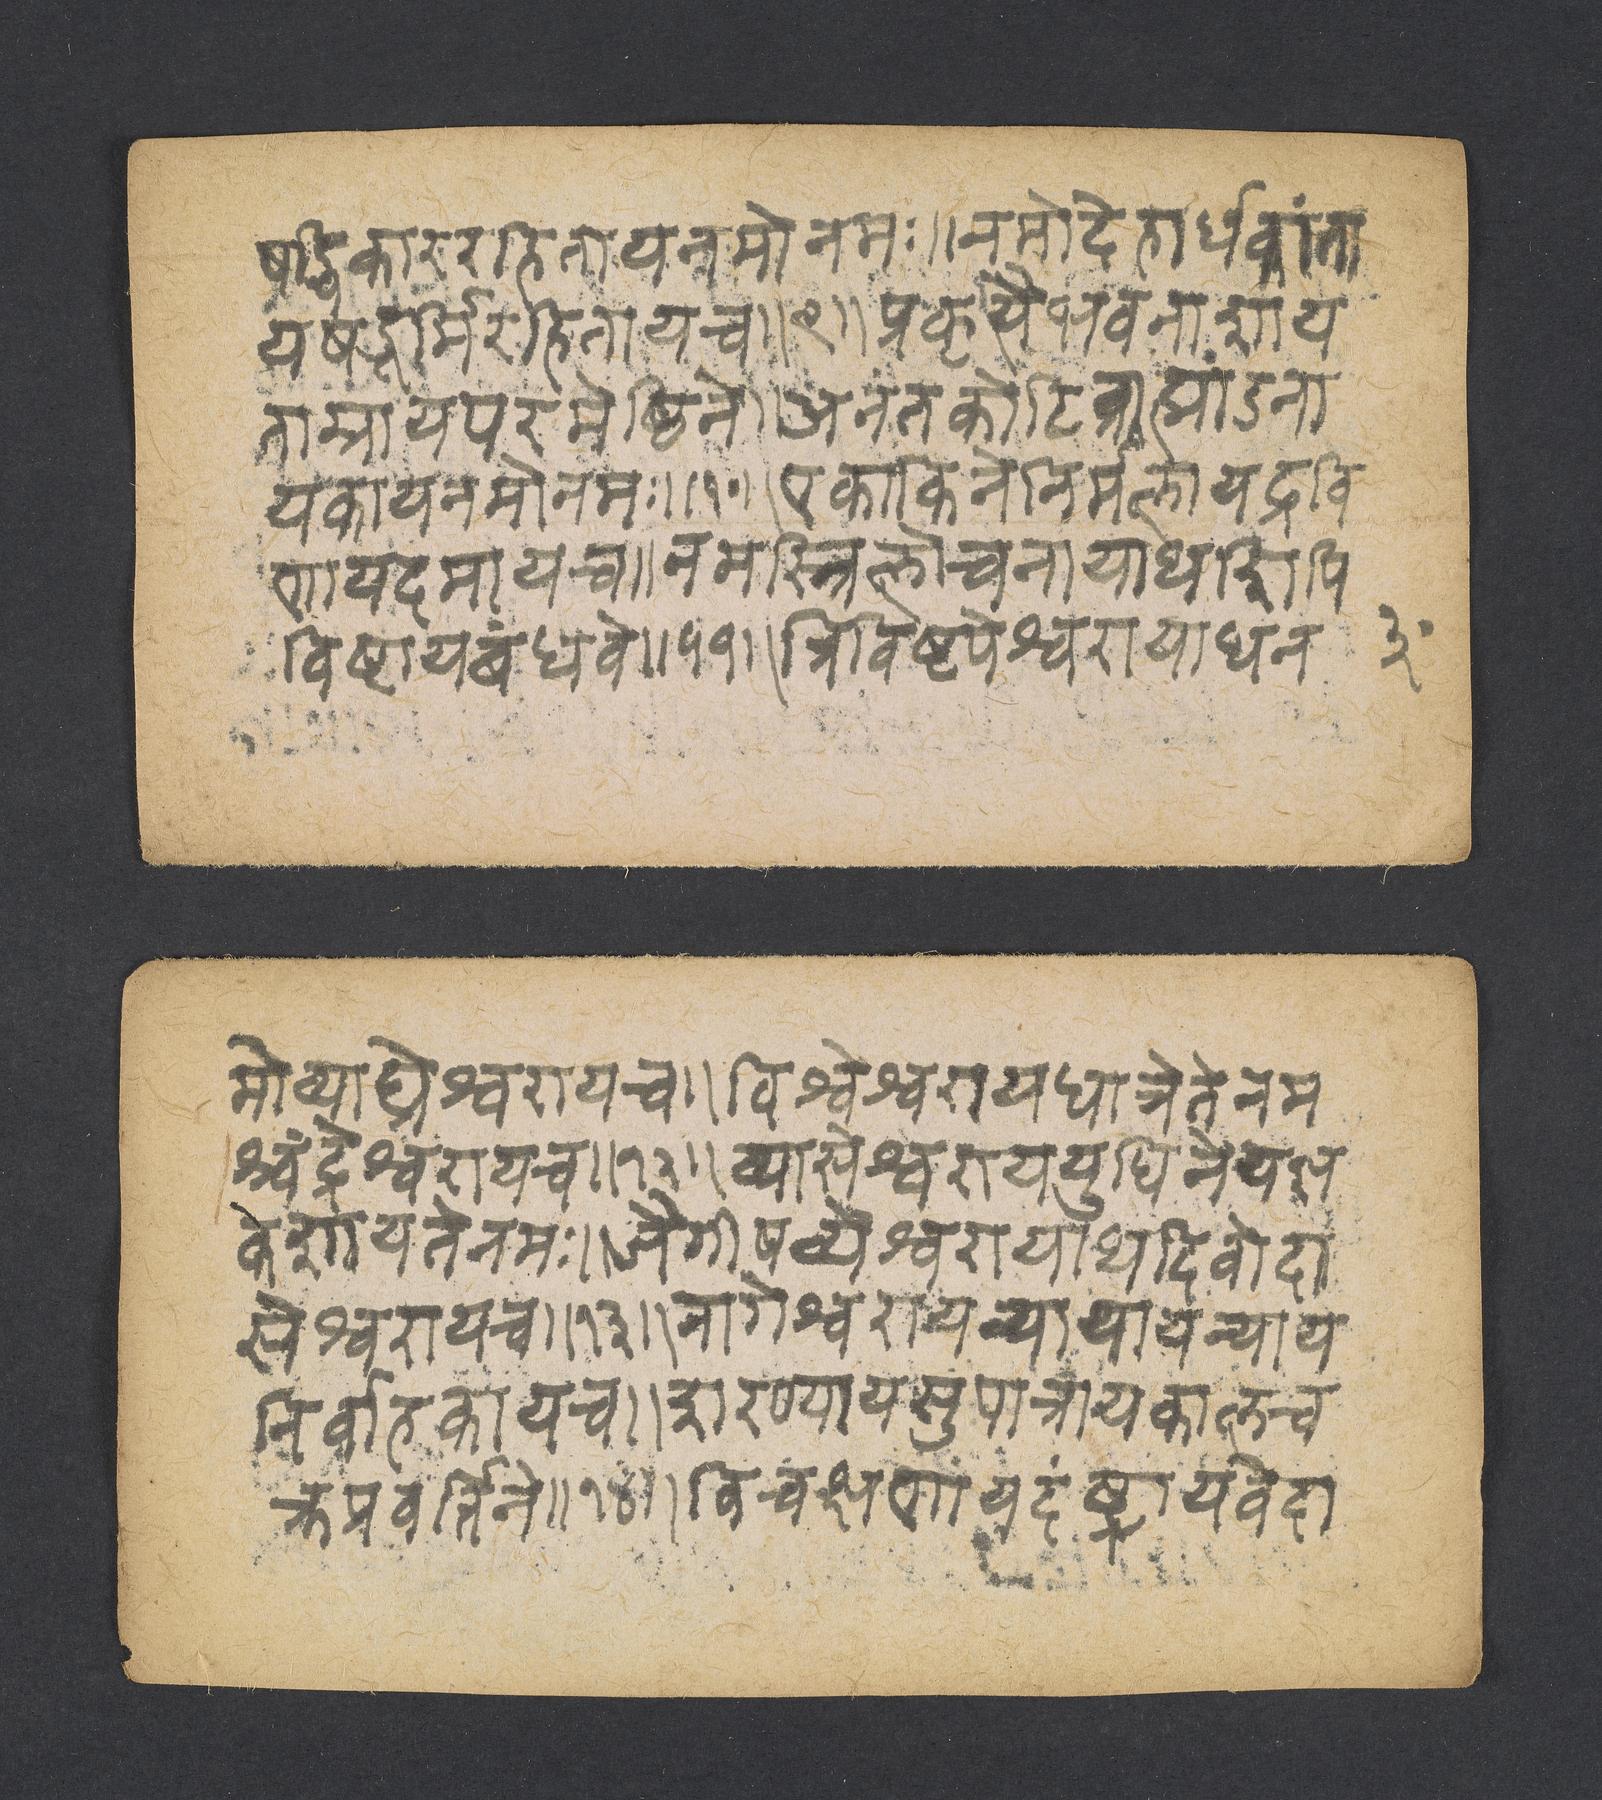 षड्विकाररहितायनमोनमः॥नमोदेहार्धकांता
यषडूर्मिरहितायच॥९॥प्रकृत्यैभवनाशाय
ताम्रायपरमेष्ठिने॥अनंतकोटिब्राह्मांडना
यकायनमोनमः॥१०॥एकाकिनेनिर्मलायद्रवि
णायदमायच॥नमस्त्रिलोचनायाथशिपि
विष्टायबंधवे॥११॥त्रिविष्टपेश्वरायाथन
३
मोव्याघ्रेश्वरायच॥विश्वेश्वरायधात्रेतेनम
श्चंद्रेश्वरायच॥१२॥व्यासेश्वराययुधिनेयज्ञ
केशायतेनमः॥जैगीषव्येश्वरायाथदिवोदा
सेश्वरायच॥१३॥नागेश्वरायन्यायायन्याय
निर्वाहकायच॥शरण्यायसुपात्रायकालच
क्रप्रवर्त्तिने॥१४॥विचक्षणायदंष्ट्रायवेदा